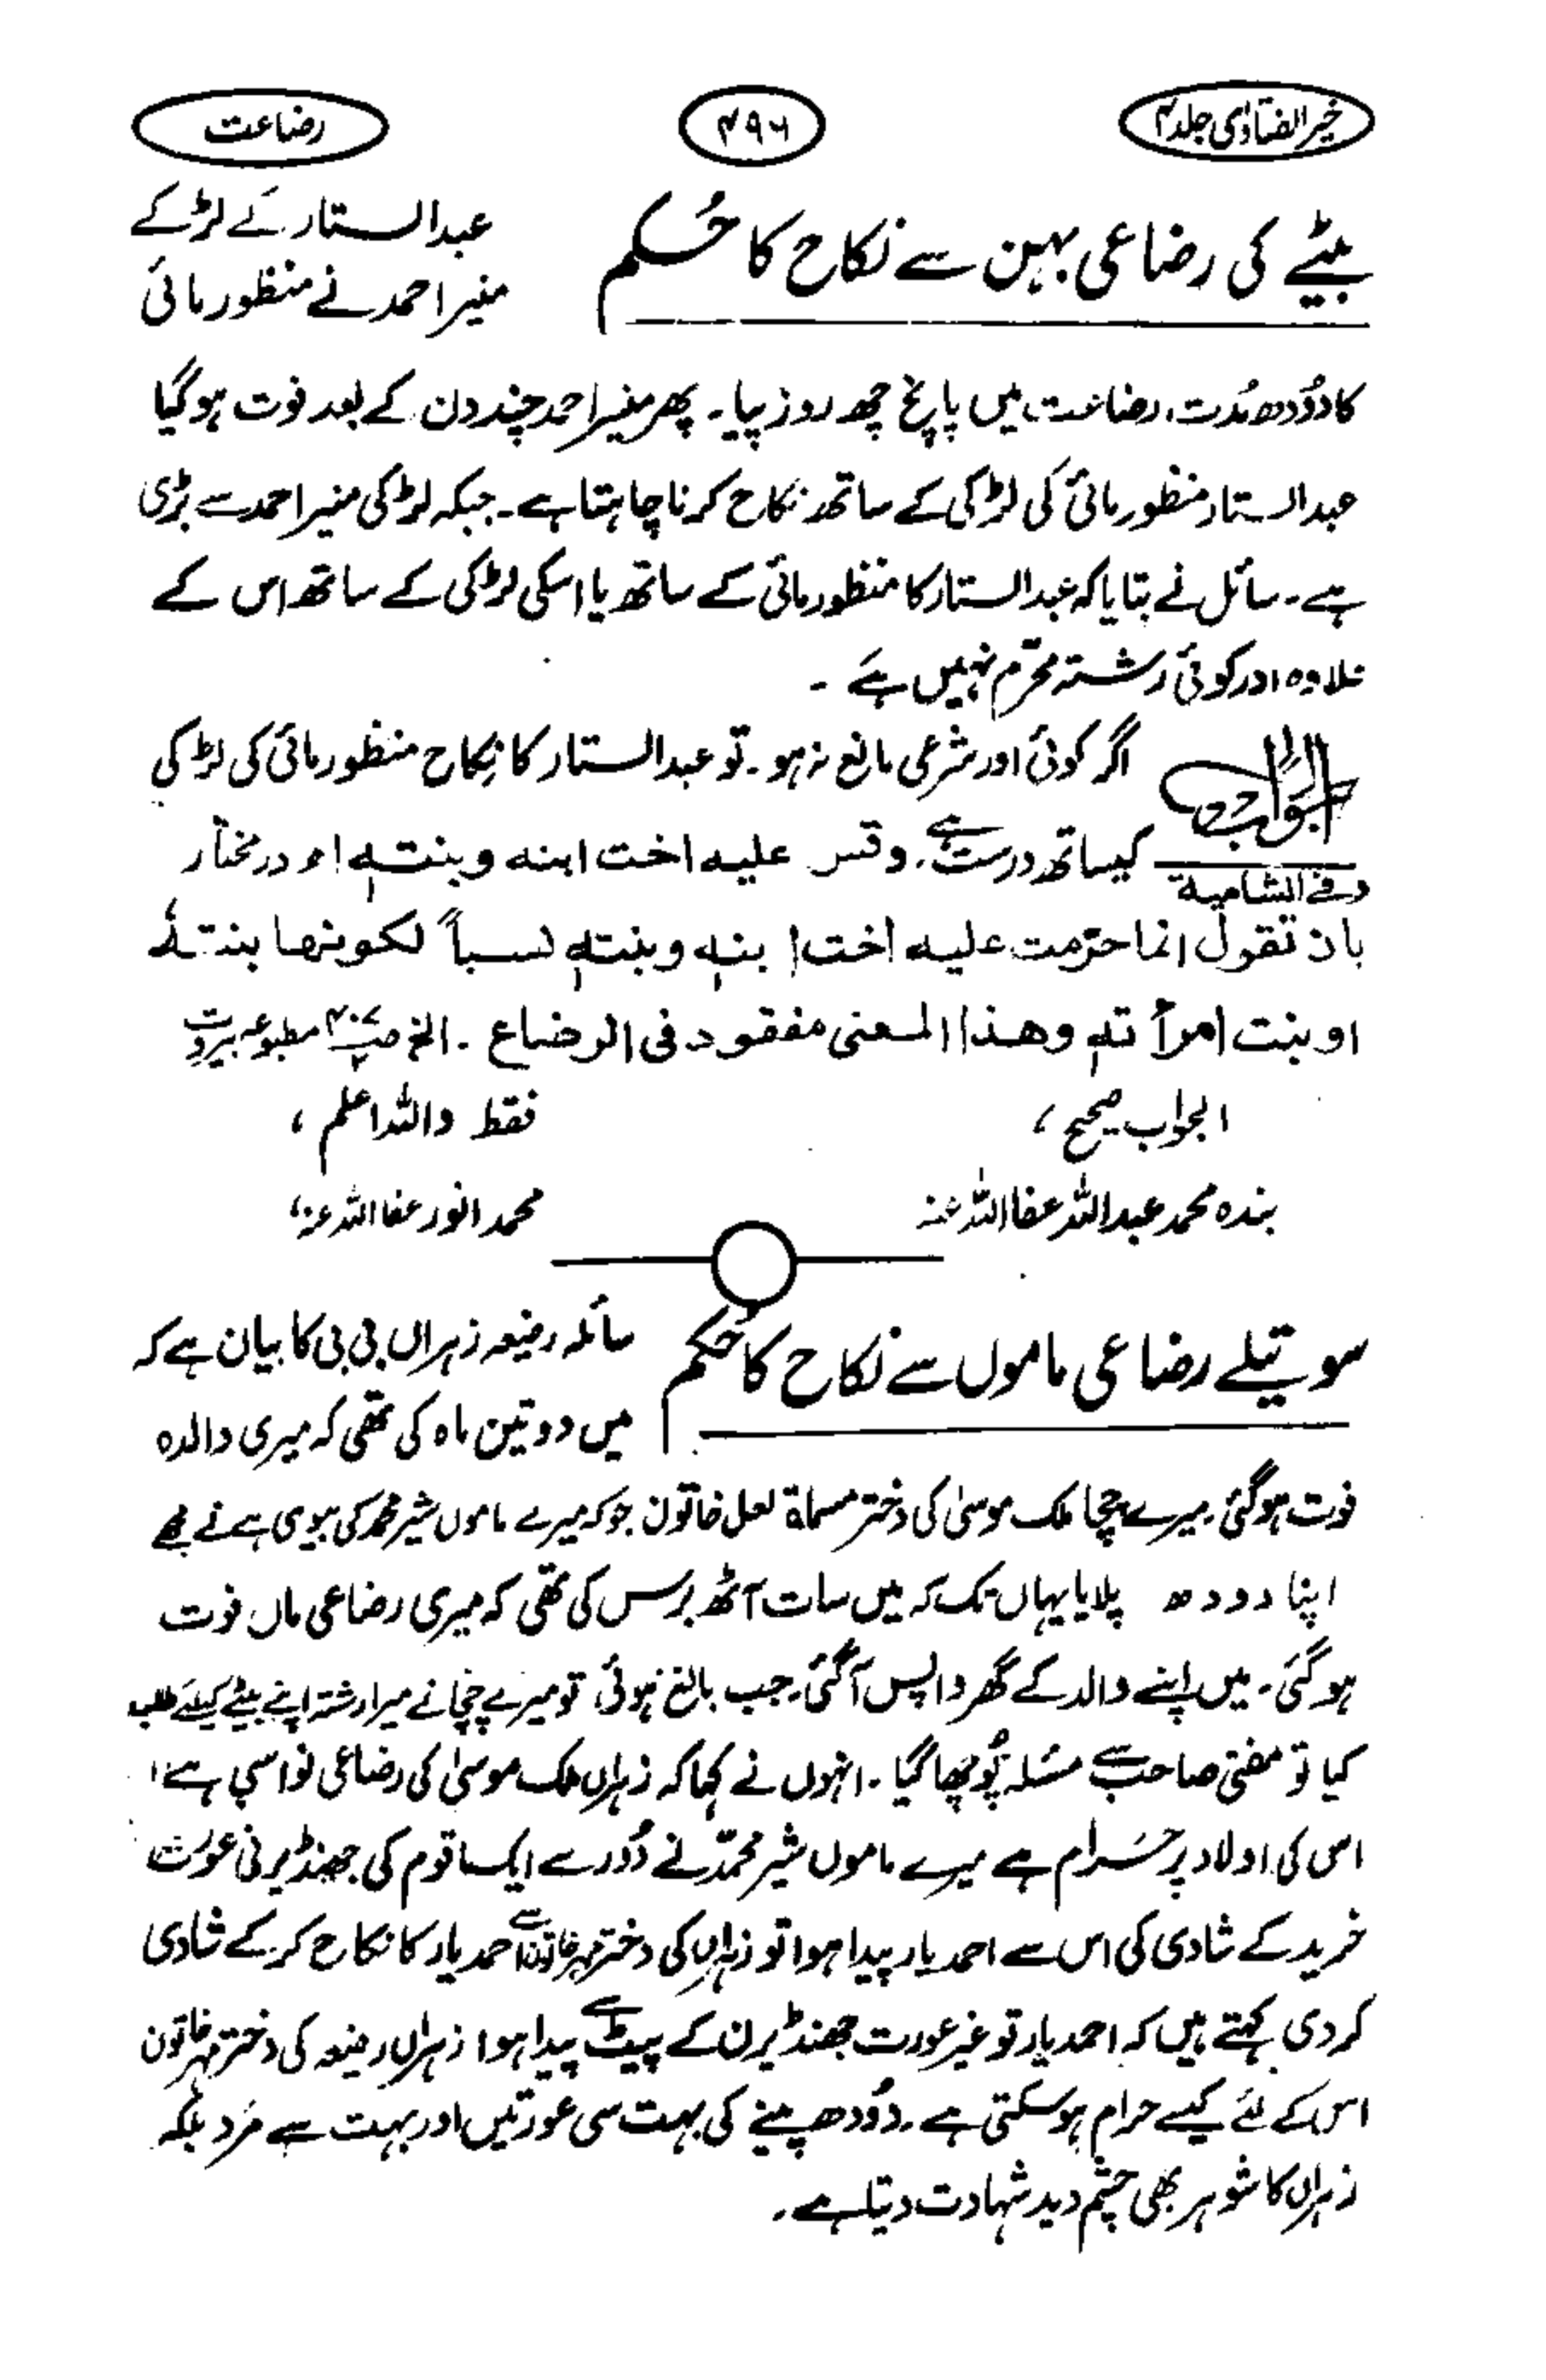 خیر الفتاوی جلد ۴
۴۹۶
رضاعت
بیٹے کی رضاعی بہین سے نکاح کا حُکم
عبدالستار کے لڑکے
منیر احمد نے منظور مائی
کا دُودھ مُدت رضاعت میں پانچ چھ روز پیا۔ پھر منیر احمد چند دن کے بعد فوت ہو گیا
عبدالستار منظور مائی کی لڑکی کے ساتھ نکاح کرنا چاہتا ہے۔ جبکہ لڑکی منیر احمد سے بڑی
ہے۔ سائل نے بتایا کہ عبدالستار کا منظور مائی کے ساتھ یا اسکی لڑکی کے ساتھ اس کے
علاوہ اور کوئی رشتہ محرّم نہیں ہے ۔
الجواب
اگر کوئی اور شرعی مانع نہ ہو۔ تو عبدالستار کا نِکاح منظور مائی کی لڑکی
کیساتھ درست ہے۔ وقس علیہ اخت ابنہ وبنتہٖ اھ درمختار
وفی الشامیۃ
بان تقول انما حرّمت علیہ اخت ابنہٖ وبنتہٖ نسباً لکونہا بنتہٗ
او بنت امرأتہٖ وھذا المعنی مفقود فی الرضاع ۔ الخ مطبوعہ بیروت
الجواب صحیح ،
فقط واللہ اعلم ،
بندہ محمد عبداللہ عفا اللہ عنہ
محمد انور عفا اللہ عنہ،
سوتیلے رضاعی ماموں سے نکاح کا حُکم
سائلہ رضیعہ زہراں بی بی کا بیان ہے کہ
میں دو تین ماہ کی تھی کہ میری والدہ
فوت ہو گئی۔ میرے چچا ملک موسیٰ کی دختر مسماۃ لعل خاتون جو کہ میرے ماموں شیر محمد کی بیوی ہے نے مجھے
اپنا دودھ پلایا یہاں تک کہ میں سات آٹھ برس کی تھی کہ میری رضاعی ماں فوت
ہو گئی۔ میں اپنے والد کے گھر واپس آگئی۔ جب بالغ ہوئی تو میرے چچا نے میرا رشتہ اپنے بیٹے کیلئے طلب
کیا تو مفتی صاحب سے مسئلہ پُوچھا گیا۔ انہوں نے کہا کہ زہراں ملک موسیٰ کی رضاعی نواسی ہے،
اس کی اولاد پر حَرام ہے میرے ماموں شیر محمّد نے دُور سے ایک قوم کی جھنڈیرنی عورت
خرید کے شادی کی اس سے احمد یار پیدا ہوا تو زہراں کی دختر مہر خاتون سے احمد یار کا نکاح کر کے شادی
کر دی کہتے ہیں کہ احمد یار تو غیر عورت جھنڈیرن کے پیٹ سے پیدا ہوا زہراں رضیعہ کی دختر مہر خاتون
اس کے لئے کیسے حرام ہو سکتی ہے۔ دُودھ پینے کی بہت سی عورتیں اور بہت سے مَرد بلکہ
زہراں کا شوہر بھی چشم دید شہادت دیتا ہے۔